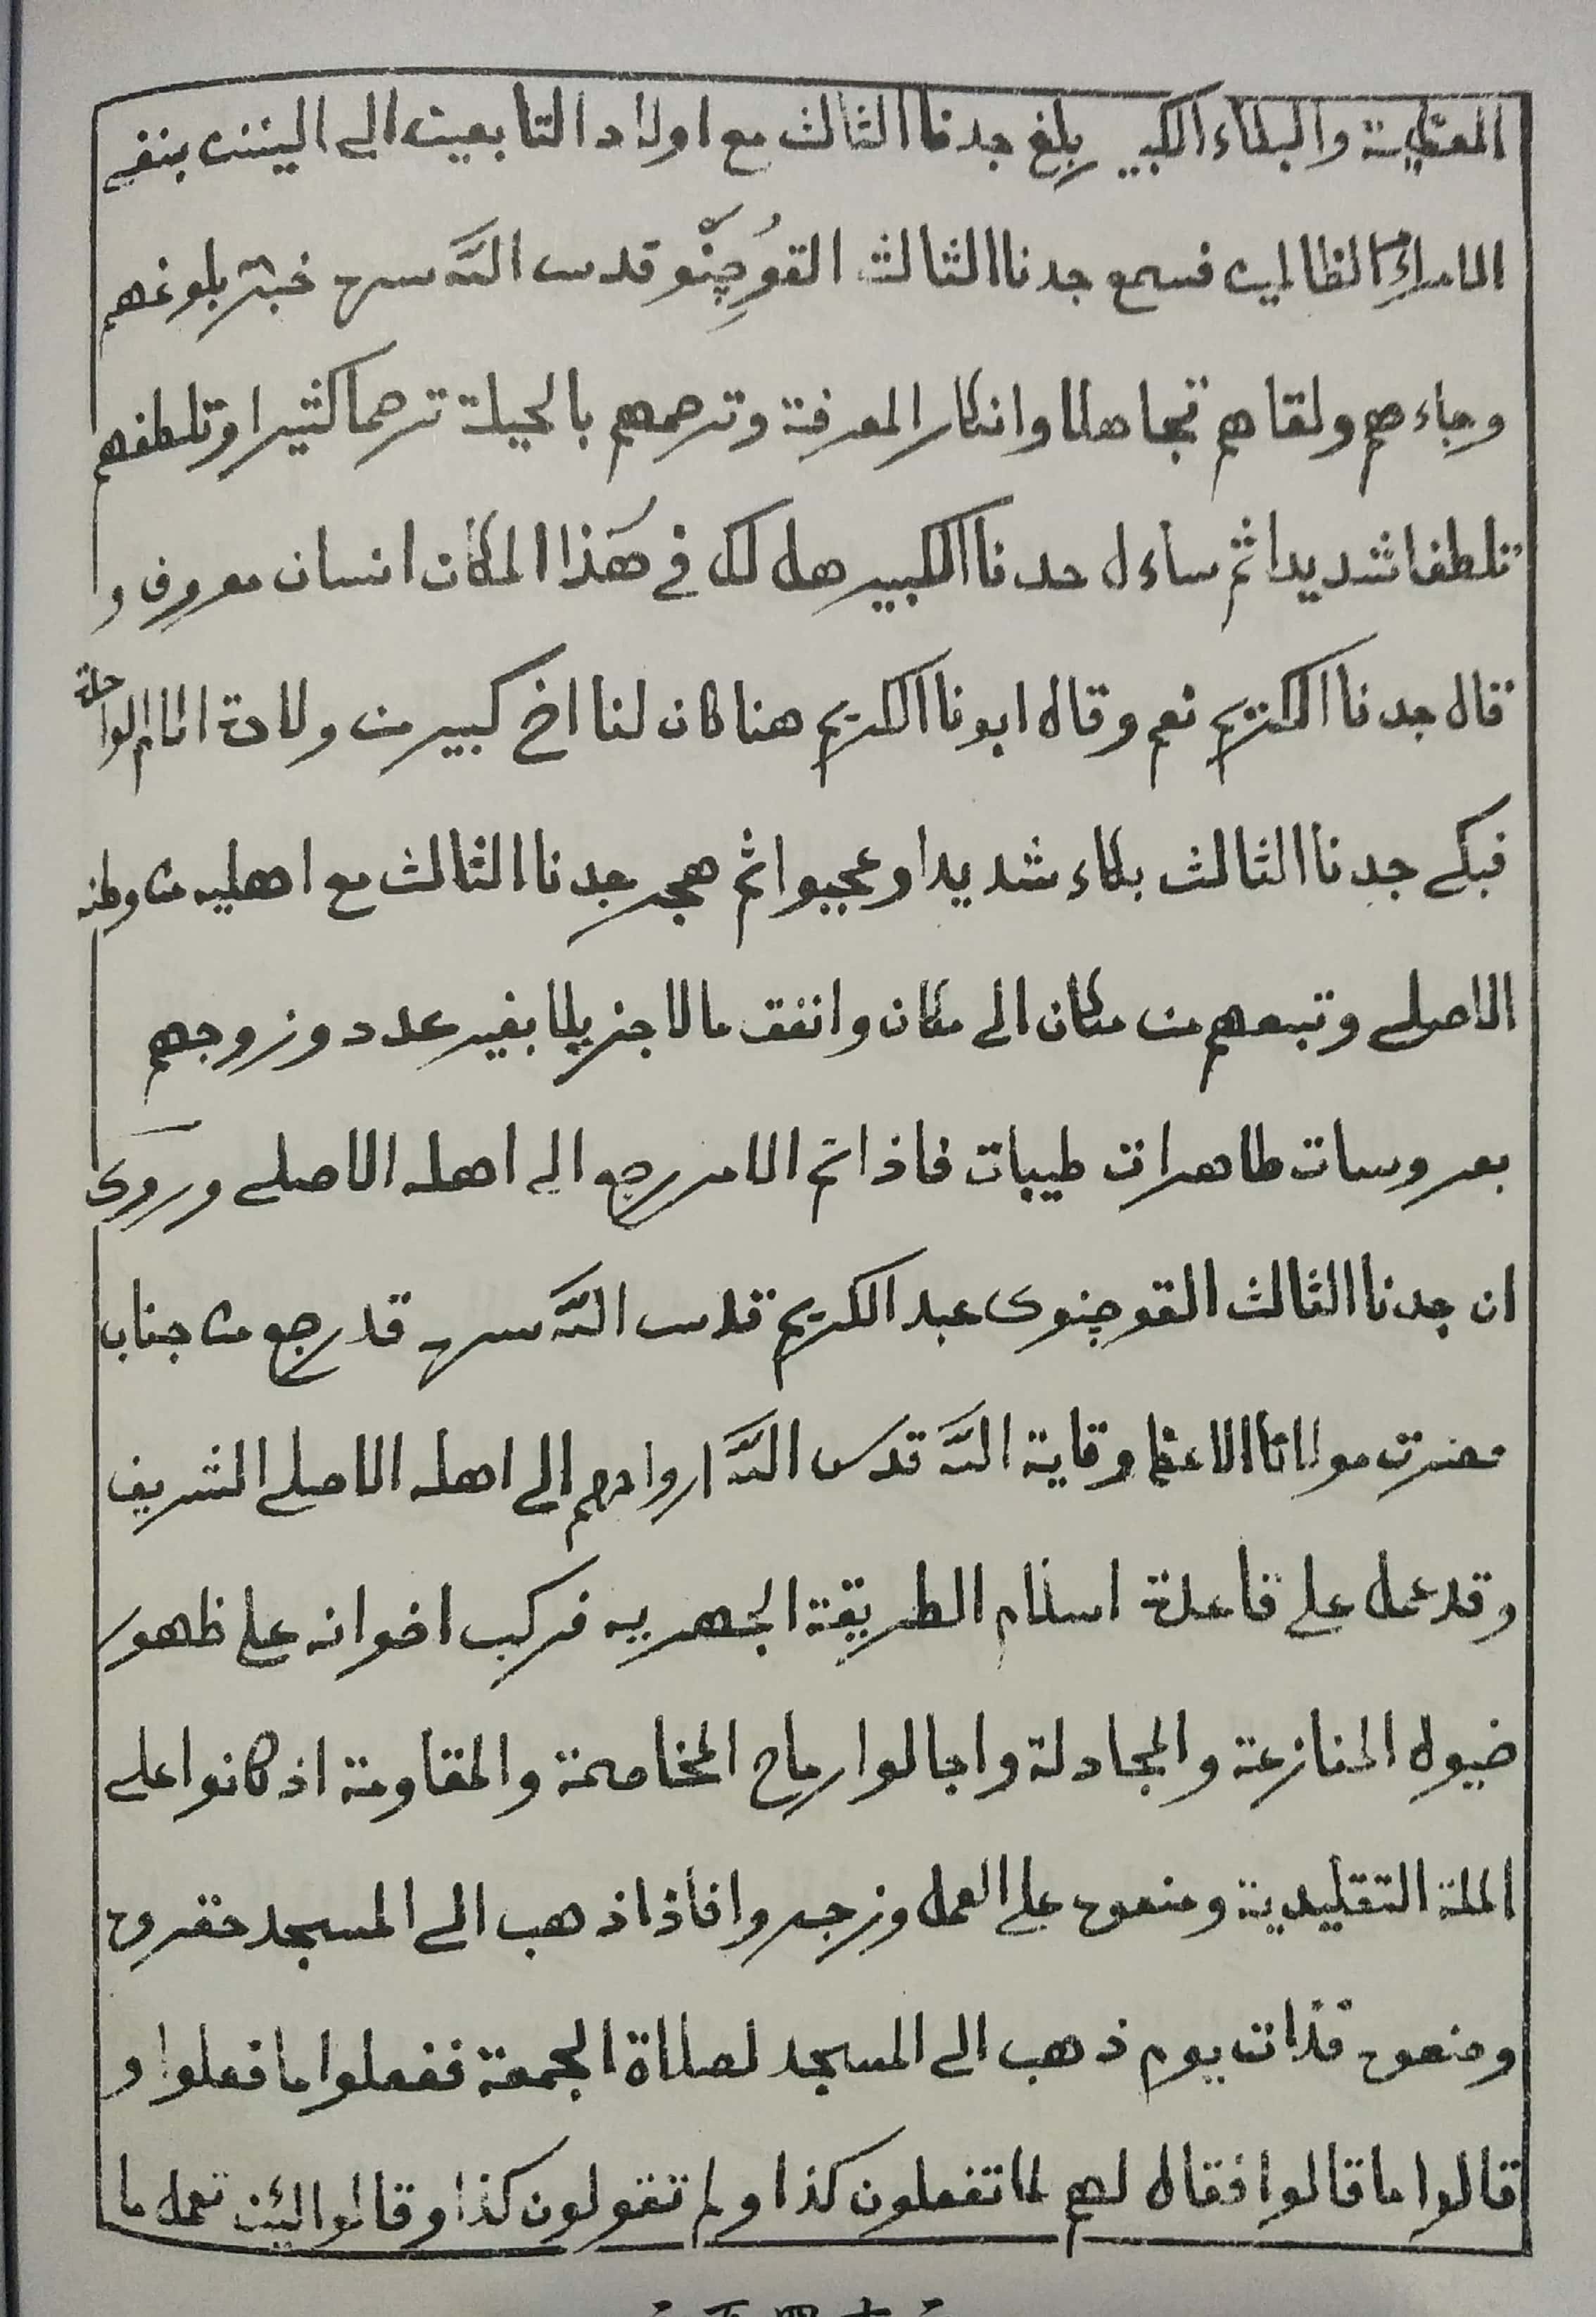 المعظمة والبكاء الكبير بلغ جدنا الثالث مع اولاد التابعين الى اليننن بنفى
الامراء الظالمين فسمع جدنا الثالث القُوچِنُّو قدس الله سره خبر بلوغهم
وجاءهم ولقاهم تجاهلا وانكار المعرفة وترحمهم بالحيلة ترحما كثيرا وتلطفهم
تلطفا شديدا ثم ساءل جدنا الكبير هل لك في هذا المكان انسان معروف و
قال جدنا الكريم نعم وقال ابونا الكريم هنا كان لنا اخ كبير من ولادة الام الواحدة
فبكى جدنا الثالث بكاء شديدا وعجبوا ثم هجر جدنا الثالث مع اهليه من وطنه
الاصلى وتبعهم من مكان الى مكان وانفق مالا جزيلا بغير عدد وزوجهم
بعروسات طاهرات طيبات فاذا تم الامر رجع الى اهله الاصلى وروى
ان جدنا الثالث القوچنوى عبد الكريم قدس الله سره قد رجع من جناب
حضرت مولانا الاعظم وقاية الله قدس الله ارواحهم الى اهله الاصلى الشريف
وقد عمل على قاعدة اسلام الطريقة الجهريه فركب اخوانه على ظهور
خيول المنازعة والمجادلة واجالوا رماح المخاصمة والمقاومة اذ كانوا على
الملة التقليدية ومنعوه على العمل وزجروا فاذا ذهب الى المسجد حقروه
ومنعوه فذات يوم ذهب الى المسجد لصلاة الجمعة ففعلوا ما فعلوا و
قالوا ما قالوا فقال لهم لما تفعلون كذا ولم تقولون كذا وقالوا لئن تعمل ما